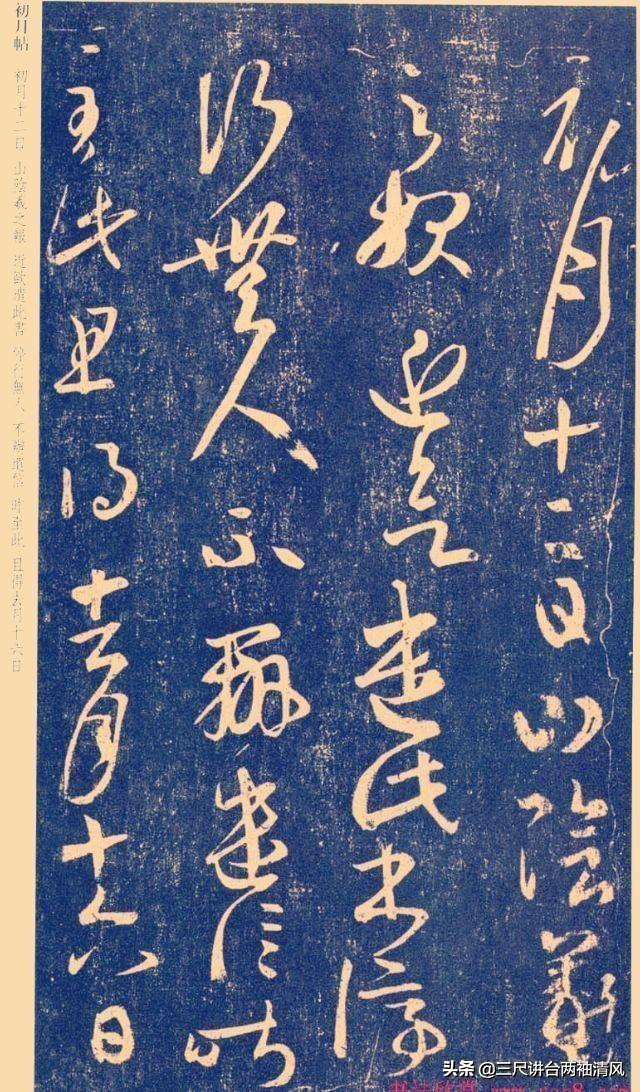 初月十二日山陰羲
之報近欲遣此書停
行無人不辦遣信昨
至此且得去月十六日
初月帖 初月十二日 山陰羲之報 近欲遣此書 停行無人 不辦遣信 時至此 且得去月十六日
头条 @三尺讲台两袖清风